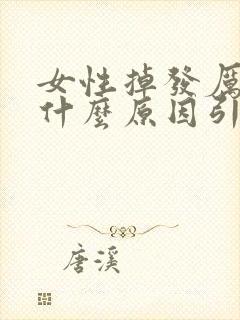 女性掉發厲
什麼原因引
唐溪